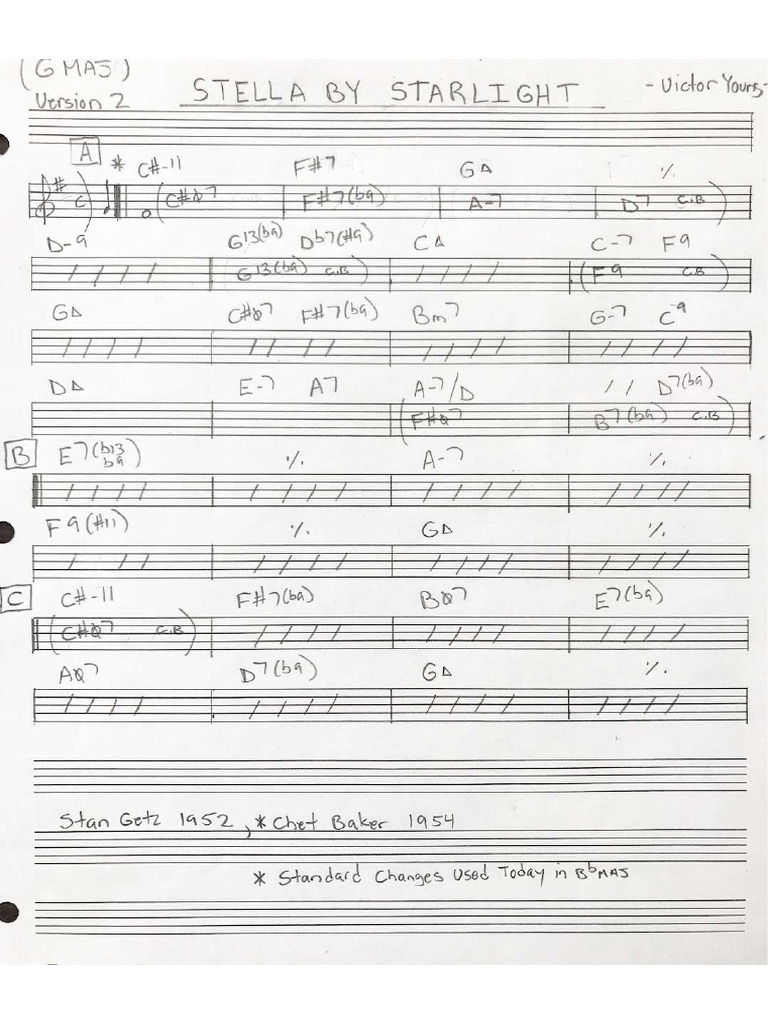 (G MAJ)
Version 2 STELLA BY STARLIGHT - Victor Youns -
A * C#-11 F#7 G△ ٪
C (C#ø7 C.B F#7(b9) A-7 D7 C.B)
D-9 G13(b9) Db7(#9) C△ C-7 F9
(G13(b9) C.B) (F9 C.B)
G△ C#ø7 F#7(b9) Bm7 G-7 C-9
D△ E-7 A7 A-7/D / / D7(b9)
(F#ø7 B7(b9) C.B)
B E7(b13 b9) ٪ A-7 ٪
F9(#11) ٪ G△ ٪
C C#-11 F#7(b9) Bø7 E7(b9)
(C#ø7 C.B)
Aø7 D7(b9) G△ ٪
Stan Getz 1952, * Chet Baker 1954
* Standard Changes Used Today in Bb MAJ